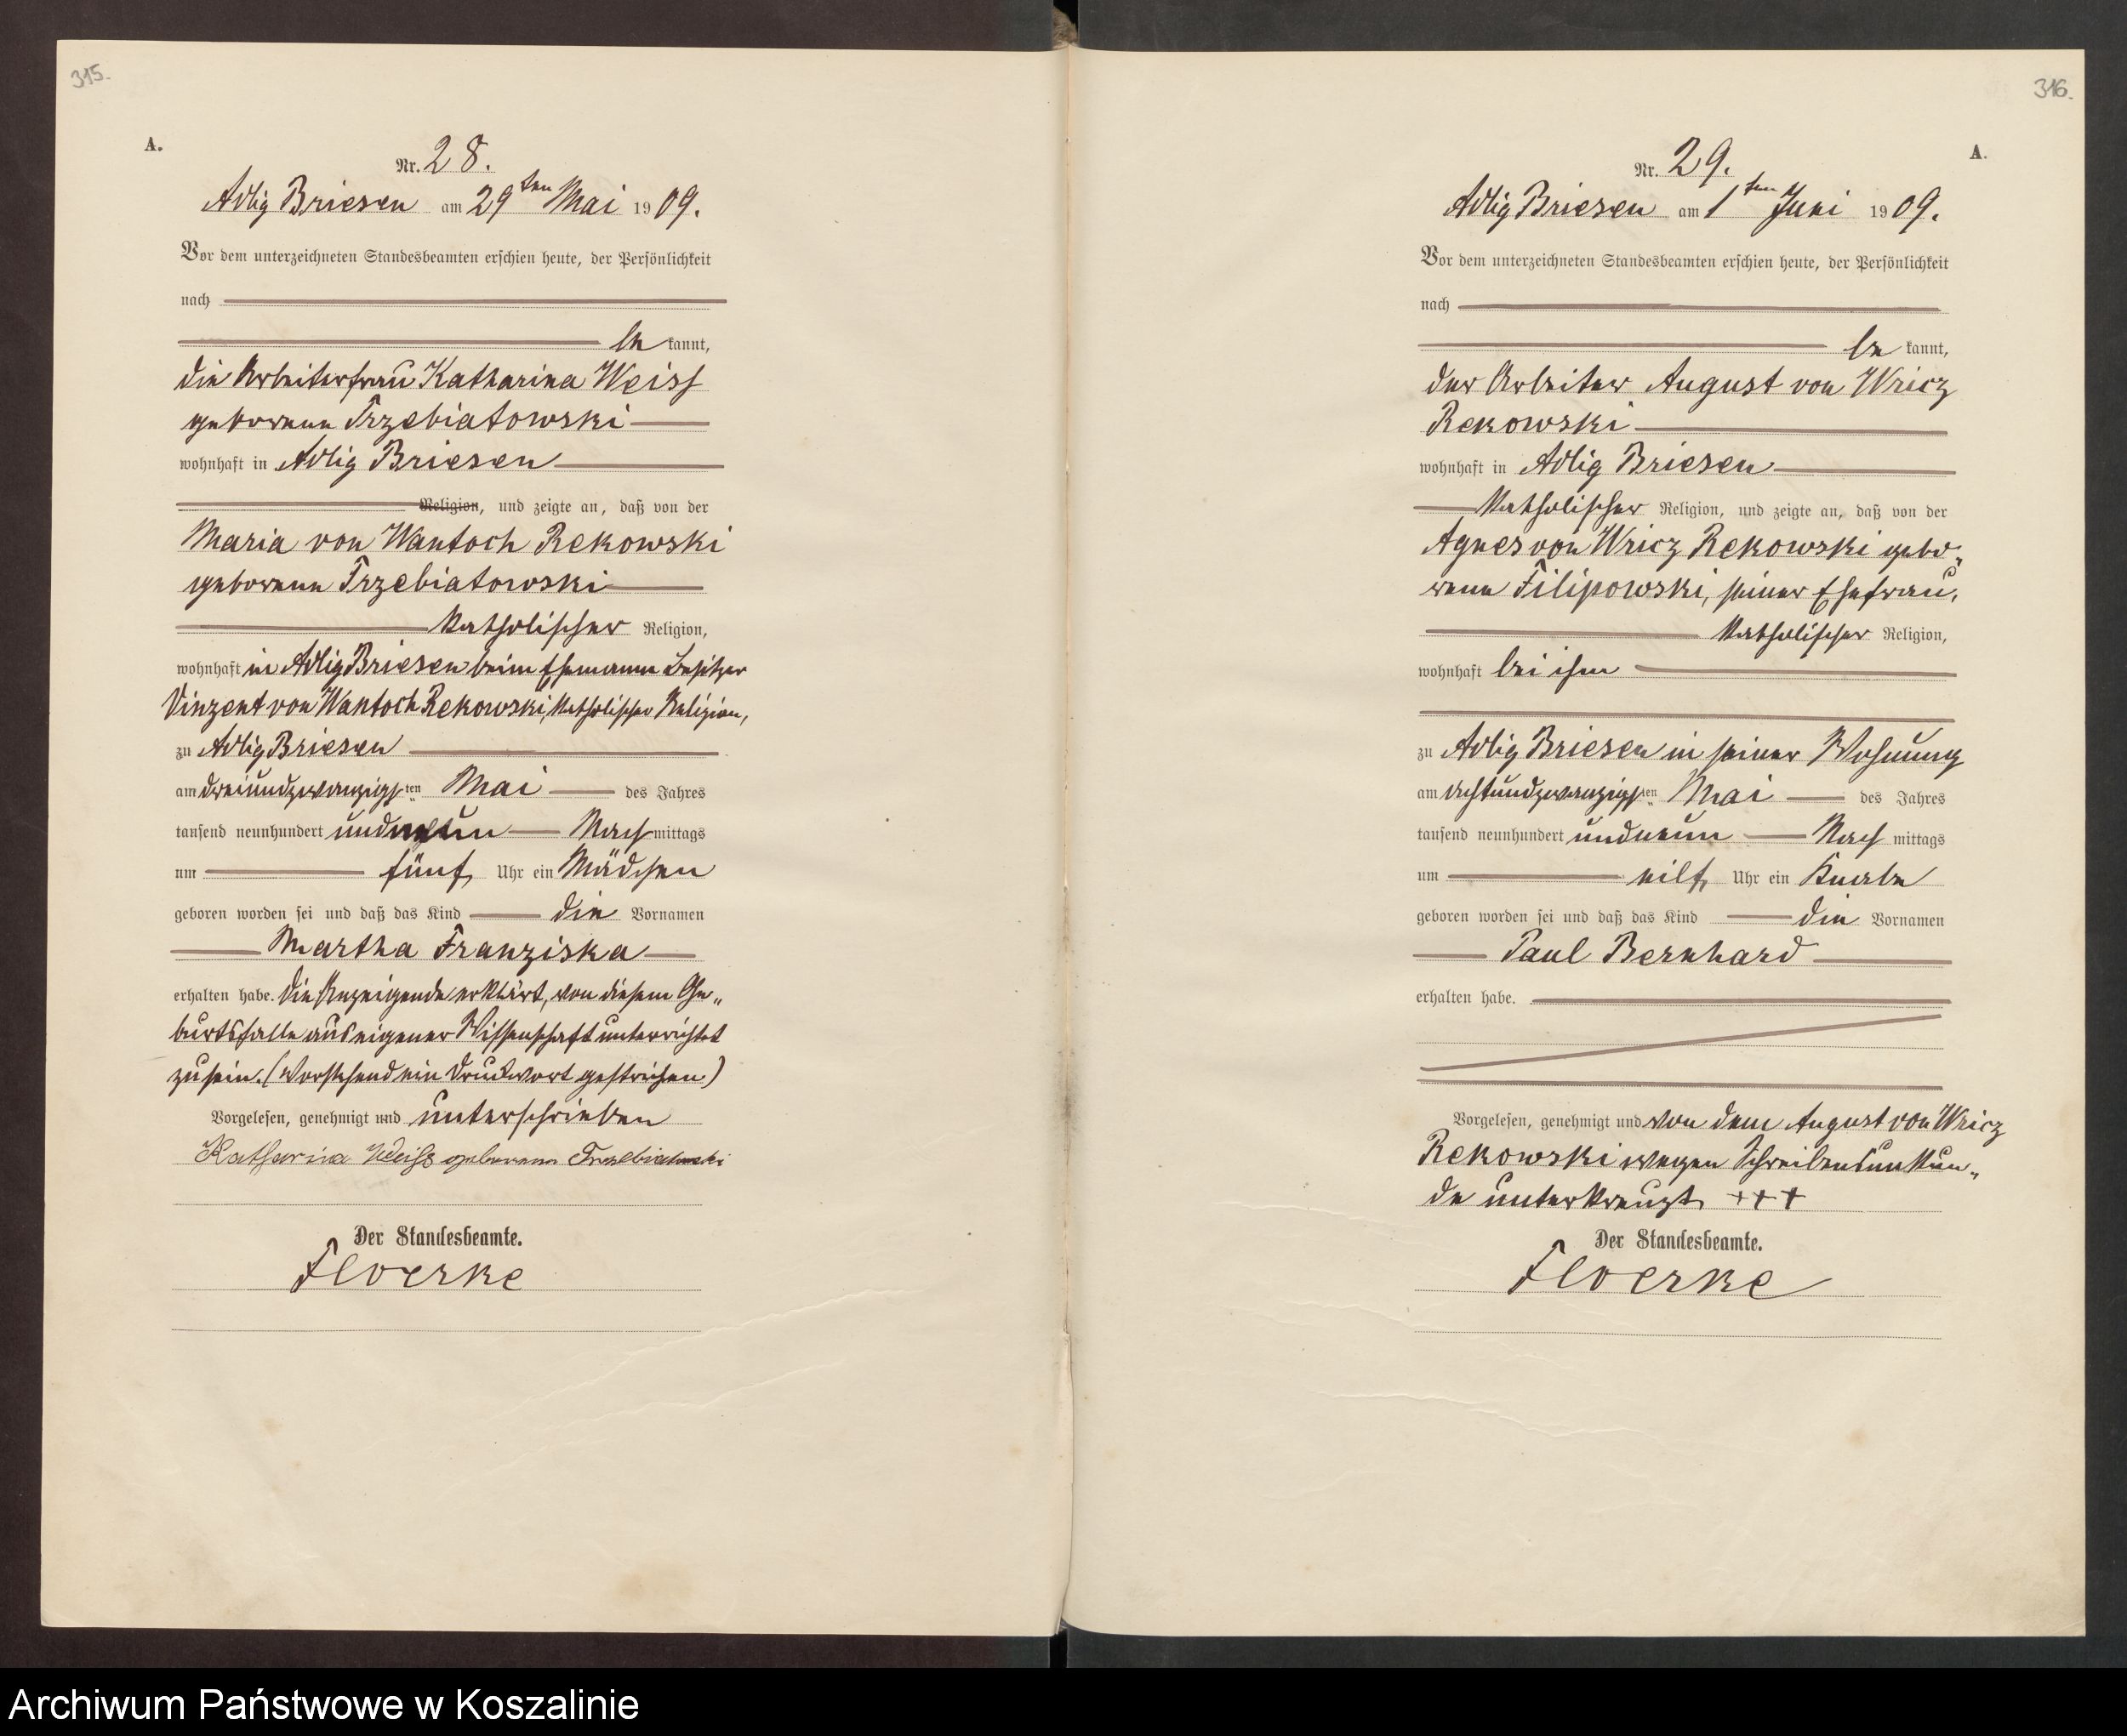 315.
A.
Nr. 28.
Adlig Briesen am 29ten Mai 1909.
Vor dem unterzeichneten Standesbeamten erschien heute, der Persönlichkeit
nach
be kannt,
die Arbeiterfrau Katharina Weiss
geborene Trzebiatowski
wohnhaft in Adlig Briesen
Religion, und zeigte an, daß von der
Maria von Wantoch Rekowski
geborene Trzebiatowski
katholischer Religion,
wohnhaft in Adlig Briesen beim Ehemanne Besitzer
Vinzent von Wantoch Rekowski, katholischer Religion,
zu Adlig Briesen
am dreiundzwanzigsten Mai des Jahres
tausend neunhundert und neun Nach mittags
um fünf Uhr ein Mädchen
geboren worden sei und daß das Kind die Vornamen
Martha Franziska
erhalten habe. Die Anzeigende erklärt, von diesem Ge„
burtsfalle aus eigener Wissenschaft unterrichtet
zu sein. (Vorstehend ein Druckwort gestrichen)
Vorgelesen, genehmigt und unterschrieben
Katharina Weiß geborene Trzebiatowski
Der Standesbeamte.
Floerke
316.
A.
Nr. 29.
Adlig Briesen am 1ten Juni 1909.
Vor dem unterzeichneten Standesbeamten erschien heute, der Persönlichkeit
nach
be kannt,
der Arbeiter August von Wricz
Rekowski
wohnhaft in Adlig Briesen
katholischer Religion, und zeigte an, daß von der
Agnes von Wricz Rekowski gebo„
rene Filipowski, seiner Ehefrau,
katholischer Religion,
wohnhaft bei ihm
zu Adlig Briesen in seiner Wohnung
am achtundzwanzigsten Mai des Jahres
tausend neunhundert und neun Nach mittags
um eilf Uhr ein Knabe
geboren worden sei und daß das Kind die Vornamen
Paul Bernhard
erhalten habe.
Vorgelesen, genehmigt und von dem August von Wricz
Rekowski wegen Schreibensunkun„
de unterkreuzt +++
Der Standesbeamte.
Floerke
Archiwum Państwowe w Koszalinie